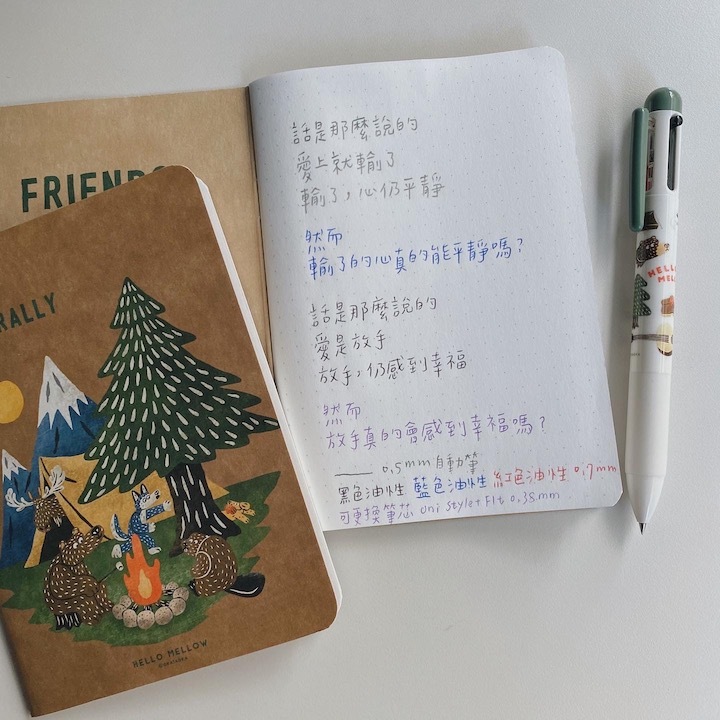 FRIENDS
RALLY
HELLO MELLOW
話是那麼說的
愛上就輸了
輸了，心仍平靜
然而
輸了的心真的能平靜嗎？
話是那麼說的
愛是放手
放手，仍感到幸福
然而
放手真的會感到幸福嗎？
0.5mm 自動筆
黑色油性 藍色油性 紅色油性 0.7mm
可更換筆芯 uni style+Fit 0.38mm
HELLO